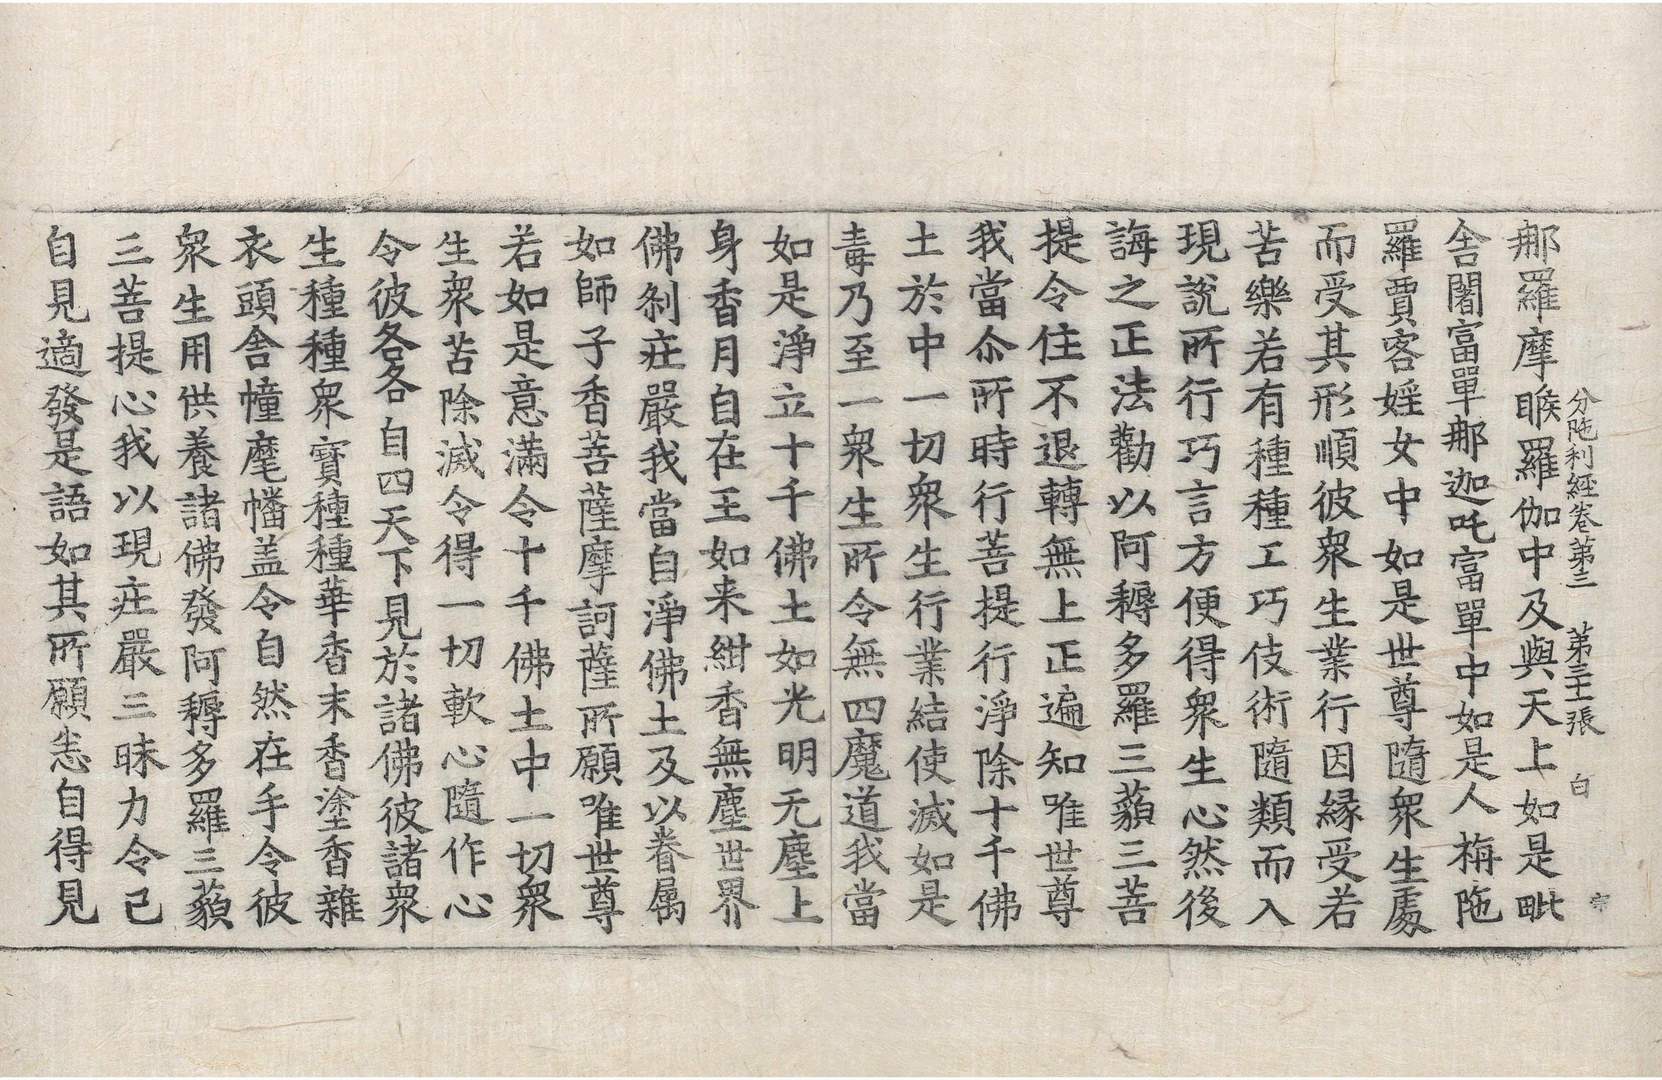 分陁利經卷第三 第三十張 白 宗
那羅摩睺羅伽中及與天上如是毗
舍闍富單那迦吒富單中如是人栴陁
羅賈客婬女中如是世尊隨衆生處
而受其形順彼衆生業行因緣受若
苦樂若有種種工巧伎術隨類而入
現說所行巧言方便得衆生心然後
誨之正法勸以阿耨多羅三藐三菩
提令住不退轉無上正遍知唯世尊
我當尒所時行菩提行淨除十千佛
土於中一切衆生行業結使滅如是
毒乃至一衆生所令無四魔道我當
如是淨立十千佛土如光明无塵上
身香月自在王如来紺香無塵世界
佛刹莊嚴我當自淨佛土及以眷属
如師子香菩薩摩訶薩所願唯世尊
若如是意滿令十千佛土中一切衆
生衆苦除滅令得一切軟心隨作心
令彼各各自四天下見於諸佛彼諸衆
生種種衆寶種種華香末香塗香雜
衣頭舍幢麾幡盖令自然在手令彼
衆生用供養諸佛發阿耨多羅三藐
三菩提心我以現莊嚴三昧力令已
自見適發是語如其所願悉自得見